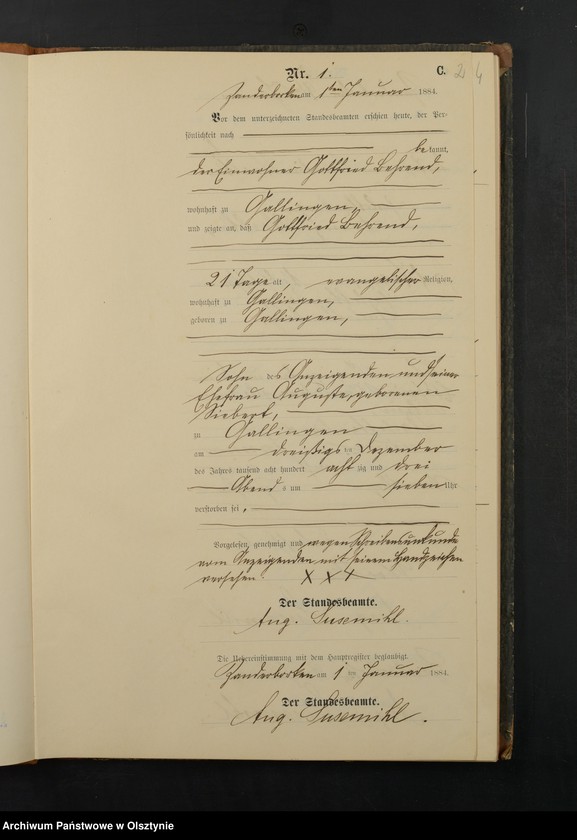 C.
2 4
Nr. 1.
Zanderborken am 1ten Januar 1884.
Vor dem unterzeichneten Standesbeamten erschien heute, der Per-
sönlichkeit nach
be kannt,
der Einwohner Gottfried Behrend,
wohnhaft zu Gallingen,
und zeigte an, daß Gottfried Behrend,
21 Tage alt, evangelischer Religion,
wohnhaft zu Gallingen,
geboren zu Gallingen,
Sohn des Anzeigenden und seiner
Ehefrau Auguste, geborenen
Siebert,
zu Gallingen
am dreißigsten Dezember
des Jahres tausend acht hundert achtzig und drei
Abends um sieben Uhr
verstorben sei.
Vorgelesen, genehmigt und wegen Schreibensunkunde
vom Anzeigenden mit seinem Handzeichen
versehen. X X X
Der Standesbeamte.
Aug. Susemihl.
Die Uebereinstimmung mit dem Hauptregister beglaubigt.
Zanderborken am 1 ten Januar 1884.
Der Standesbeamte.
Aug. Susemihl.
Archiwum Państwowe w Olsztynie